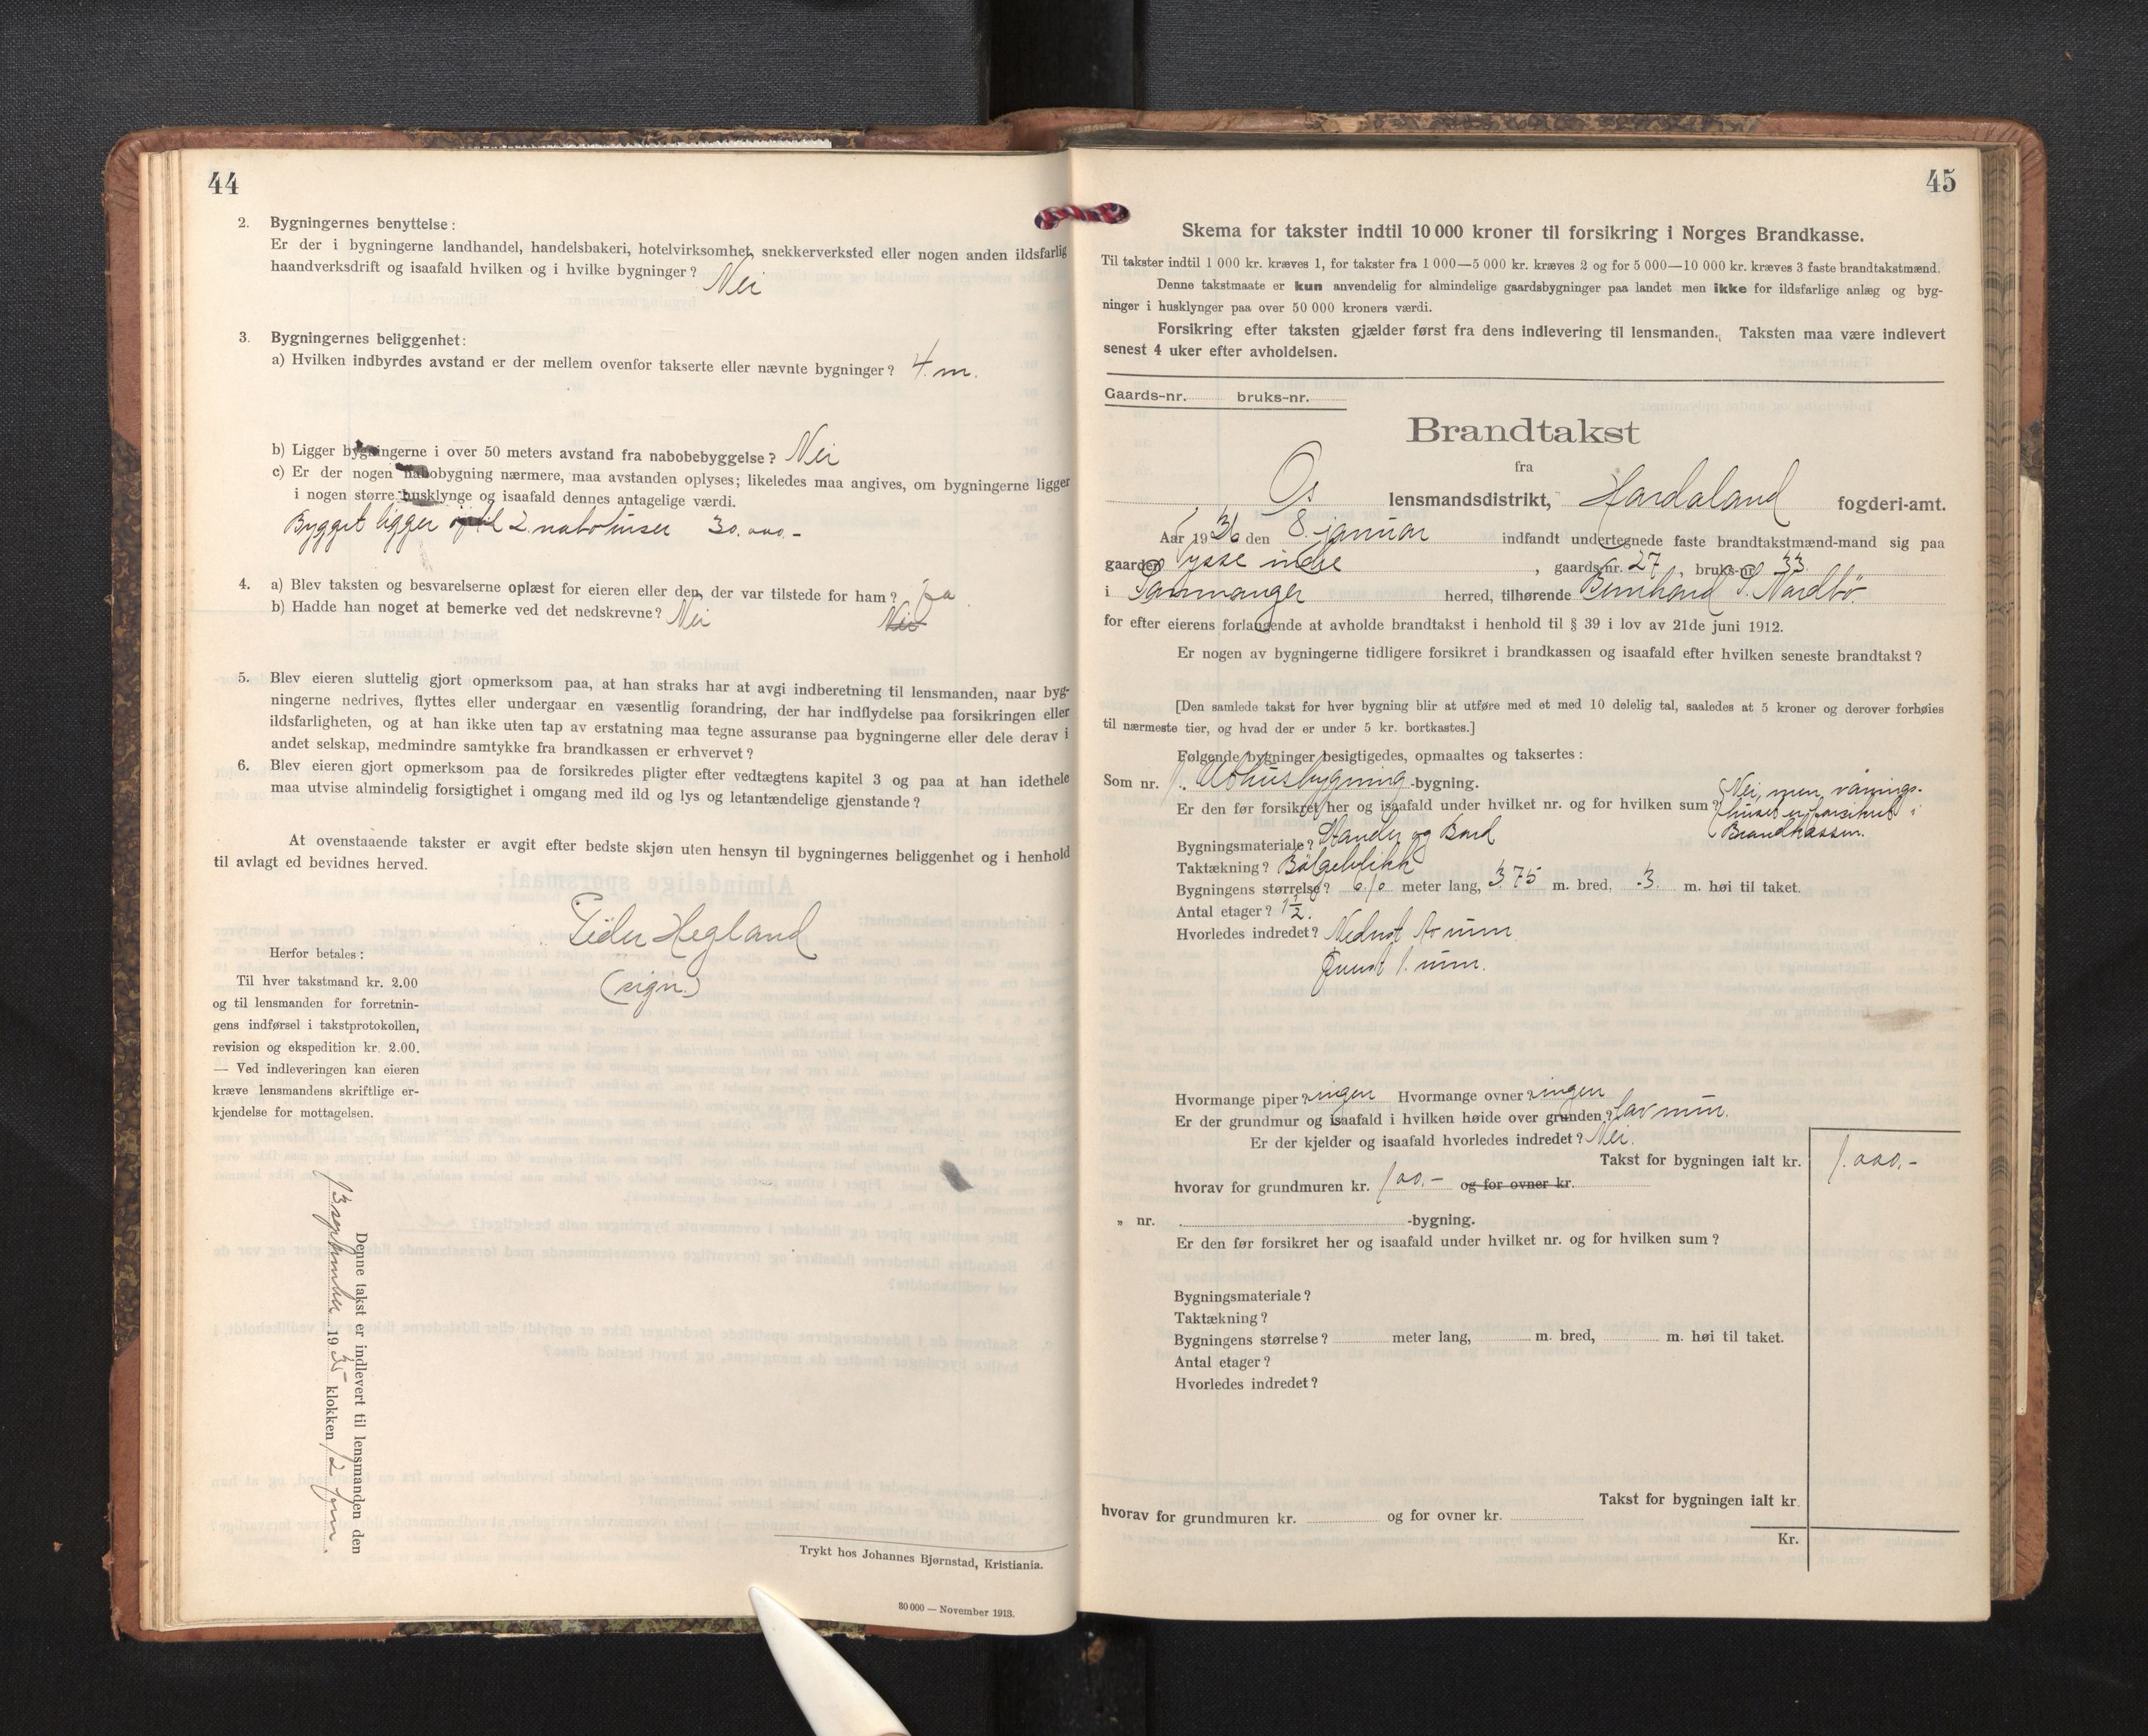 44
2. Bygningernes benyttelse:
Er der i bygningerne landhandel, handelsbakeri, hotelvirksomhet, snekkerverksted eller nogen anden ildsfarlig
haandverksdrift og isaafald hvilken og i hvilke bygninger? Nei
3. Bygningernes beliggenhet:
a) Hvilken indbyrdes avstand er der mellem ovenfor takserte eller nævnte bygninger? 4. m.
b) Ligger bygningerne i over 50 meters avstand fra nabobebyggelse? Nei
c) Er der nogen nabobygning nærmere, maa avstanden oplyses; likeledes maa angives, om bygningerne ligger
i nogen større husklynge og isaafald dennes antagelige værdi.
Bygget ligger optil 2 nabohuser 30.000.-
4. a) Blev taksten og besvarelserne oplæst for eieren eller den, der var tilstede for ham? Ja
b) Hadde han noget at bemerke ved det nedskrevne? Nei Nei
5. Blev eieren sluttelig gjort opmerksom paa, at han straks har at avgi indberetning til lensmanden, naar byg-
ningerne nedrives, flyttes eller undergaar en væsentlig forandring, der har indflydelse paa forsikringen eller
ildsfarligheten, og at han ikke uten tap av erstatning maa tegne assuranse paa bygningerne eller dele derav i
andet selskap, medmindre samtykke fra brandkassen er erhvervet?
6. Blev eieren gjort opmerksom paa de forsikredes pligter efter vedtægtens kapitel 3 og paa at han idethele
maa utvise almindelig forsigtighet i omgang med ild og lys og letantændelige gjenstande?
At ovenstaaende takster er avgit efter bedste skjøn uten hensyn til bygningernes beliggenhet og i henhold
til avlagt ed bevidnes herved.
Peder Hegland
(sign.)
Herfor betales:
Til hver takstmand kr. 2.00
og til lensmanden for forretnin-
gens indførsel i takstprotokollen,
revision og ekspedition kr. 2.00.
— Ved indleveringen kan eieren
kræve lensmandens skriftlige er-
kjendelse for mottagelsen.
Denne takst er indlevert til lensmanden den
13 september 1935 klokken 12 fm.
Trykt hos Johannes Bjørnstad, Kristiania.
80 000 — November 1913.
45
Skema for takster indtil 10 000 kroner til forsikring i Norges Brandkasse.
Til takster indtil 1 000 kr. kræves 1, for takster fra 1 000—5 000 kr. kræves 2 og for 5 000—10 000 kr. kræves 3 faste brandtakstmænd.
Denne takstmaate er kun anvendelig for almindelige gaardsbygninger paa landet men ikke for ildsfarlige anlæg og byg-
ninger i husklynger paa over 50 000 kroners værdi.
Forsikring efter taksten gjælder først fra dens indlevering til lensmanden. Taksten maa være indlevert
senest 4 uker efter avholdelsen.
Gaards-nr. bruks-nr.
Brandtakst
fra
Os lensmandsdistrikt, Hordaland fogderi-amt.
Aar 1936 den 8. januar indfandt undertegnede faste brandtakstmænd-mand sig paa
gaarden Tysse indre, gaards-nr. 27, bruks-nr. 33.
i Samnanger herred, tilhørende Bernhard S. Nordbø.
for efter eierens forlangende at avholde brandtakst i henhold til § 39 i lov av 21de juni 1912.
Er nogen av bygningerne tidligere forsikret i brandkassen og isaafald efter hvilken seneste brandtakst?
[Den samlede takst for hver bygning blir at utføre med et med 10 delelig tal, saaledes at 5 kroner og derover forhøies
til nærmeste tier, og hvad der er under 5 kr. bortkastes.]
Følgende bygninger besigtigedes, opmaaltes og taksertes:
Som nr. 1. Uthusbygning -bygning.
Er den før forsikret her og isaafald under hvilket nr. og for hvilken sum? Nei, men vånings-
huset er forsikret i
Brandkassen.
Bygningsmateriale? Stender og Bord
Taktækning? Bølgeblikk
Bygningens størrelse? 6.10 meter lang, 3.75 m. bred, 3. m. høi til taket.
Antal etager? 1 1/2.
Hvorledes indredet? Nederst to rum
Øverst 1. rum.
Hvormange piper? ingen Hvormange ovner? ingen
Er der grundmur og isaafald i hvilken høide over grunden? Lav mur.
Er der kjelder og isaafald hvorledes indredet? Nei.
Takst for bygningen ialt kr. 1.000.-
hvorav for grundmuren kr. 100.- og for ovner kr.
„ nr. -bygning.
Er den før forsikret her og isaafald under hvilket nr. og for hvilken sum?
Bygningsmateriale?
Taktækning?
Bygningens størrelse? meter lang, m. bred, m. høi til taket.
Antal etager?
Hvorledes indredet?
Takst for bygningen ialt kr.
hvorav for grundmuren kr. og for ovner kr.
Kr.